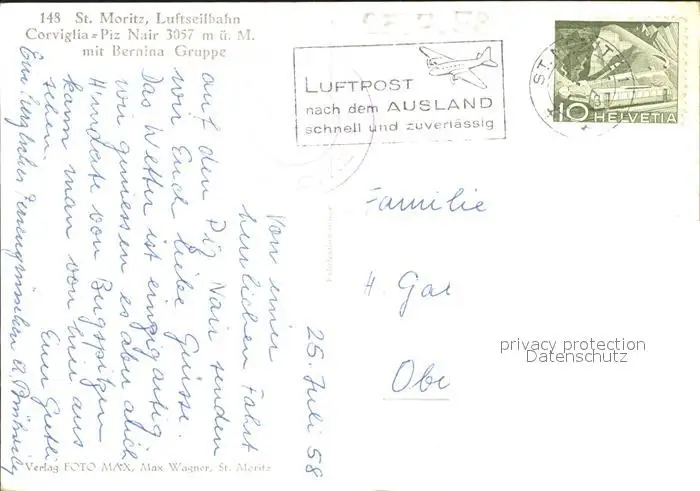 148 St. Moritz, Luftseilbahn
Corviglia-Piz Nair 3057 m ü. M.
mit Bernina Gruppe
LUFTPOST
nach dem AUSLAND
schnell und zuverlässig
ST. MORITZ
10 HELVETIA
26. Juli 58
Von einer
herrlichen Fahrt
auf den Piz Nair senden
wir Euch liebe Grüsse.
Das Wetter ist einzigartig
wir geniessen es aber auch
Hunderte von Bergspitzen
kann man von hier aus
sehen. Euer Gretli
Familie
H. Gal
Obe
privacy protection
Datenschutz
Verlag FOTO MAX, Max Wagner, St. Moritz